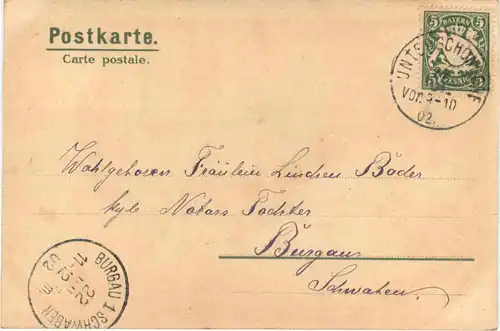 Postkarte.
Carte postale.
5 BAYERN 5
PFENNIG
VOR. 9-10
02.
Wohlgeboren Fräulein Linchen Bäder
kgl. Notars Tochter
Burgau
Schwaben.
BURGAU 1 SCHWABEN
22
11-12
02